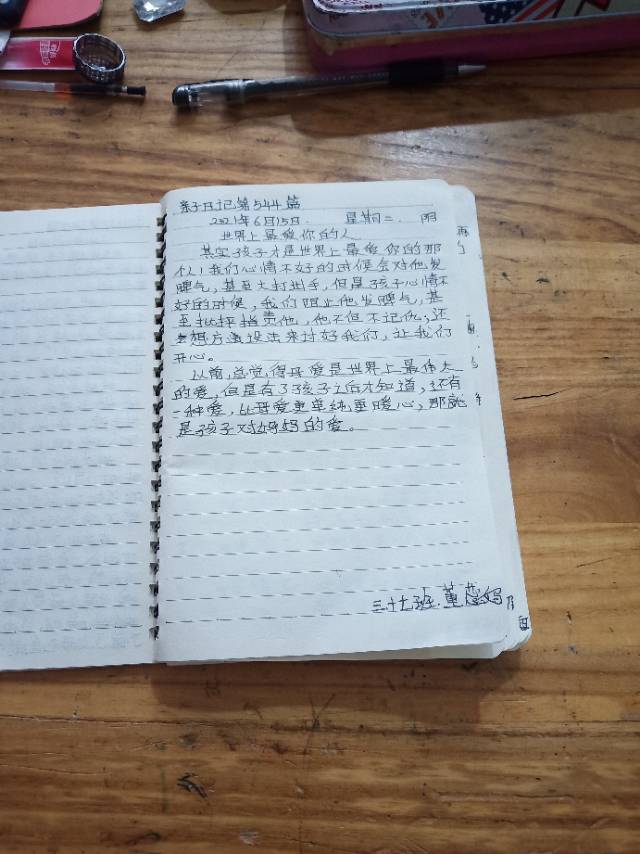 亲子日记第544篇
2021年6月15日. 星期二. 阴
世界上最爱你的人
其实孩子才是世界上最爱你的那
个人!我们心情不好的时候会对他发
脾气,甚至大打出手,但是孩子心情不
好的时候,我们阻止他发脾气,甚
至批评指责他,他不但不记仇,还
会想方设法来讨好我们,让我们
开心。
以前,总觉得母爱是世界上最伟大
的爱,但是有了孩子之后才知道,还有
一种爱,比母爱更单纯,更暖心,那就
是孩子对妈妈的爱。
三十七班.董
妈